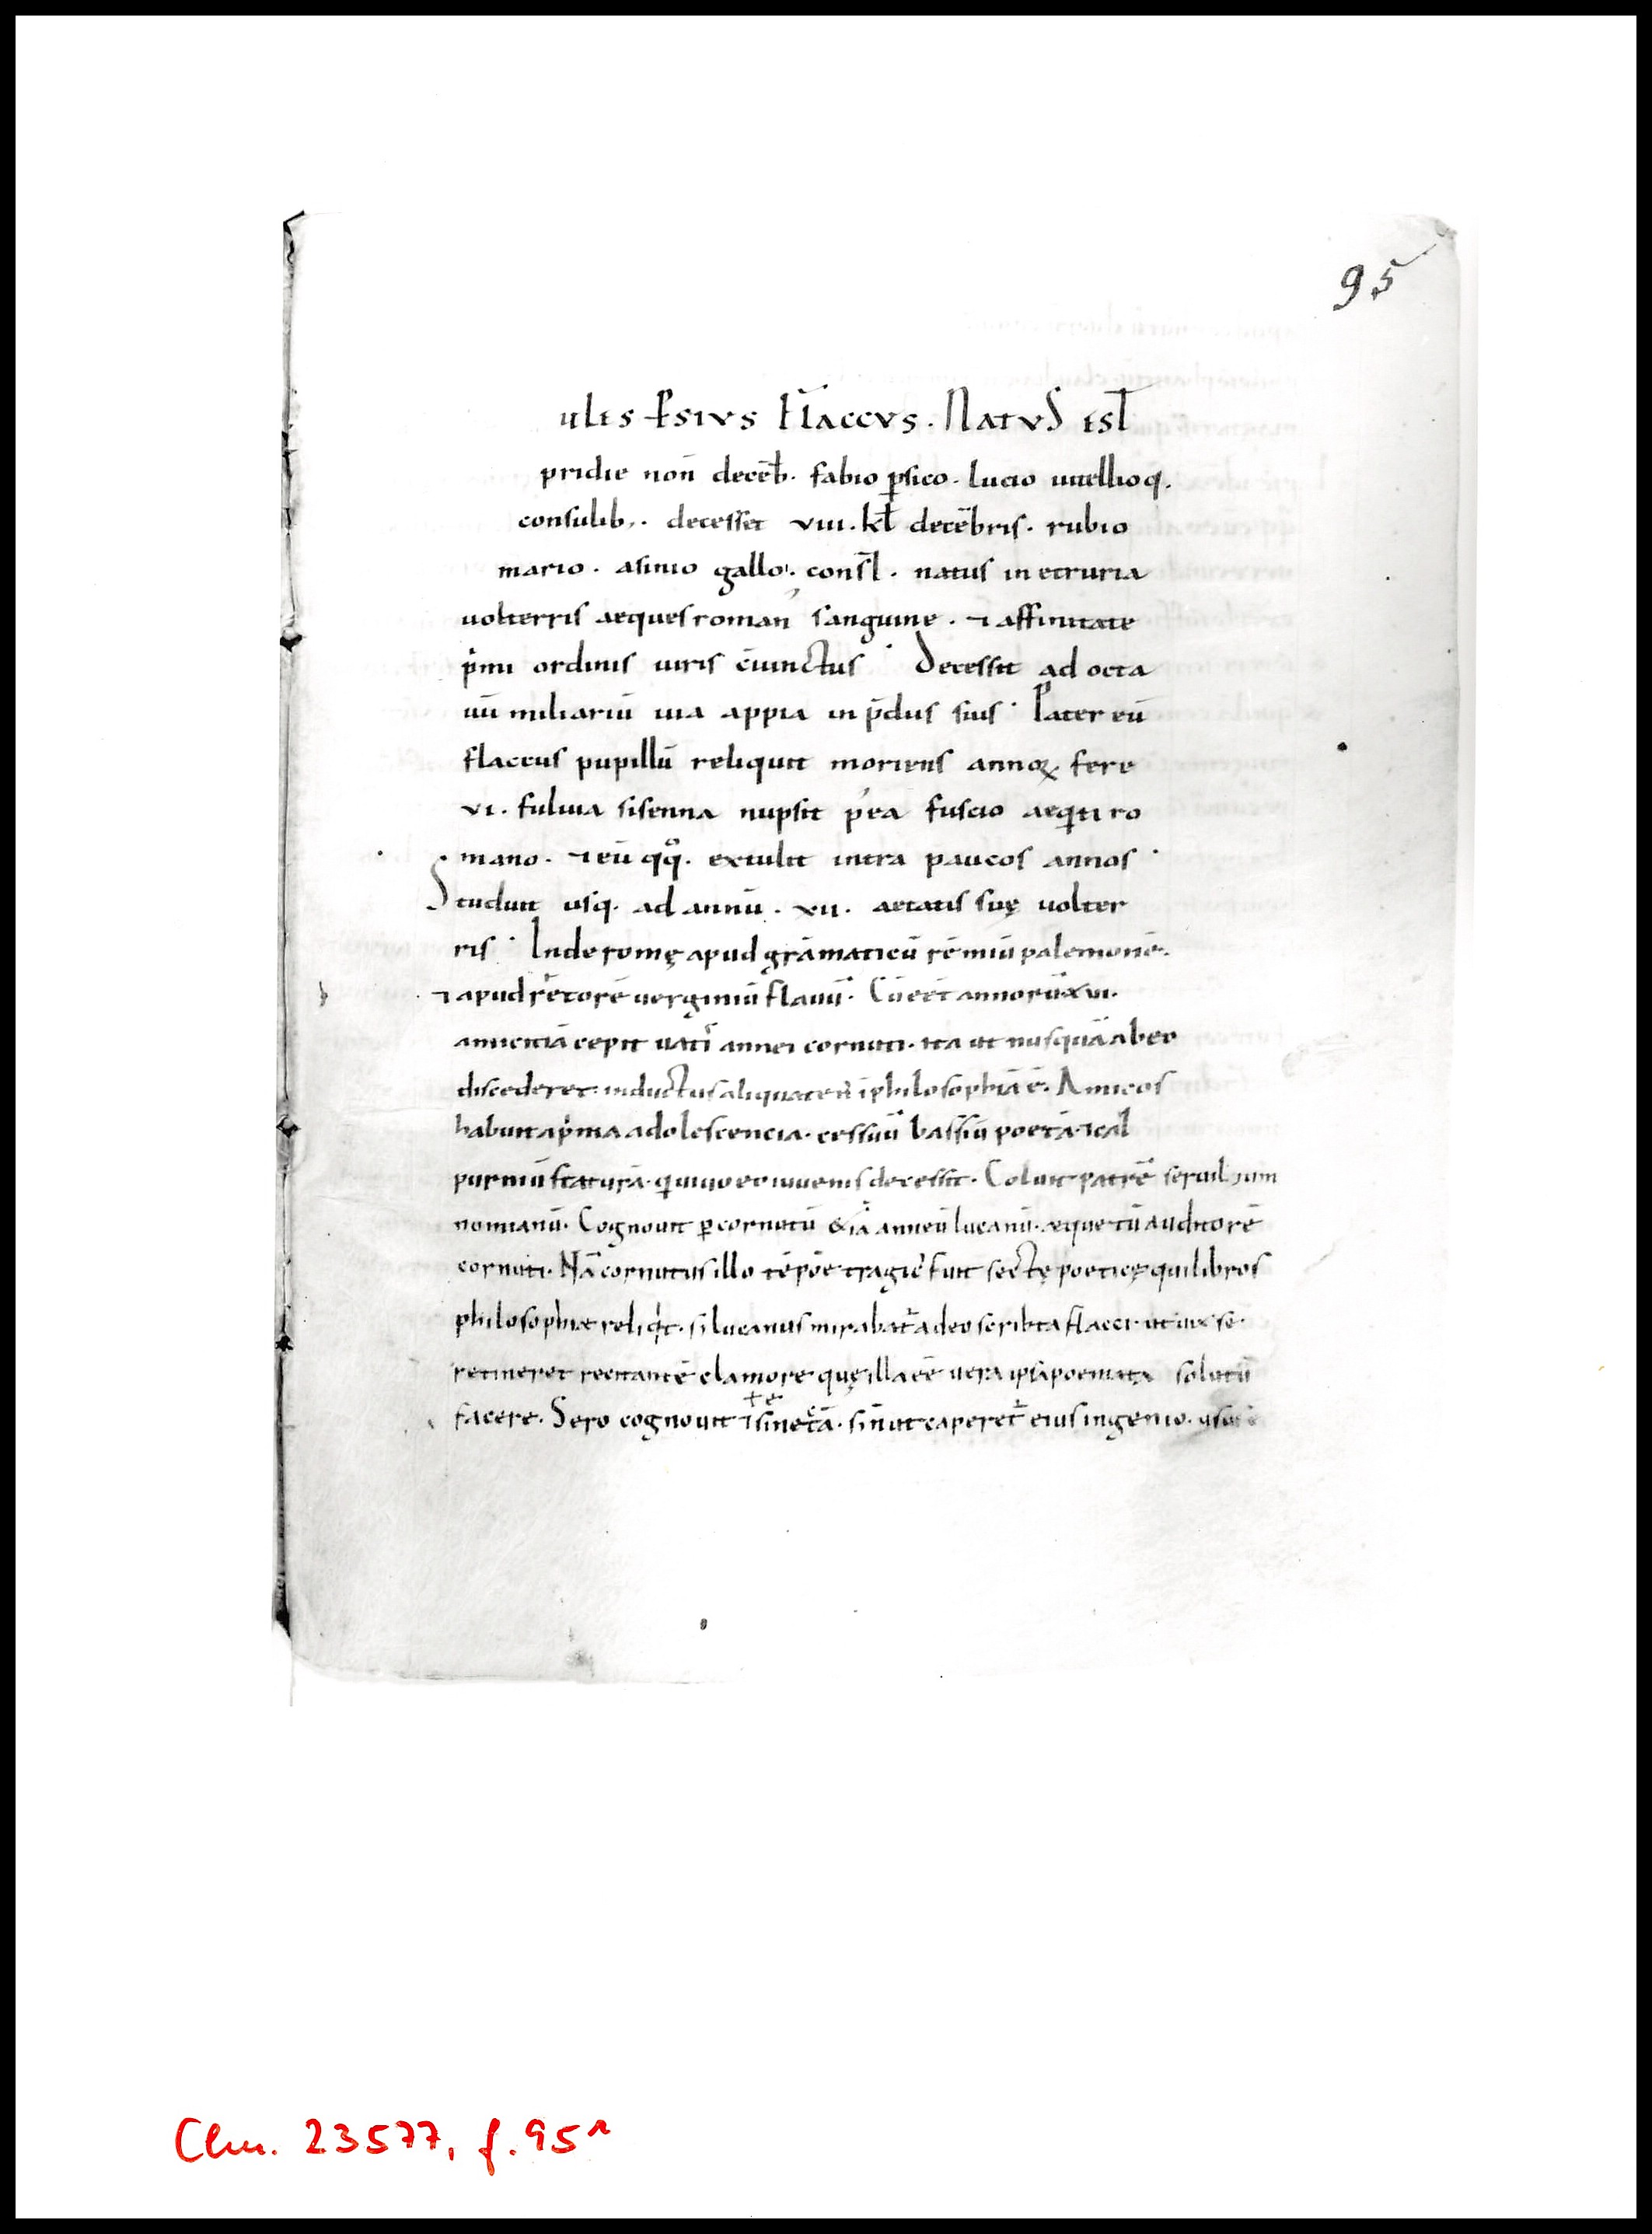 95
ules psius Flaccus. Natus est
pridie non̄ decēb. fabio ꝑsico. lucio uitellioq.
consulib,. decesset viii. kł decēbris. rubio
mario. asinio gallo. consl̄. natus in etruria
uolterris aequesroman̄ sanguine. ⁊ affinitate
pͥmi ordinis uiris c̄iunctus Decessit ad octa
uū miliariū uia appia in p̄diis siuis Pater eū
flaccus pupillū reliquit moriens annoꝝ fere
vi. fuluia sisenna nupsit pꝰea fuscio aeqͥti ro
mano. ⁊ eū qqͦ. extulit intra paucos annos
Studuit usq. ad annū. xii. aetatis suę uolter
ris Inde romę apud grāmaticū rēmiū palemonē.
⁊ apud rētorē uerginiū flauū. Cū eēt annorū xvi.
amicitiā cepit uatī annei cornuti. ita ut nusquā abeo
discederet. inductus aliquaten̄ ī philosophiā ē. Amicos
habuit apͥma adolescencia. cessiū bassiū poetā. ⁊ cal
purniū staturā. qͥ uiuo eo iuuenis decessit. Coluit patrē seruilium
nonianū. Cognouit ꝑ cornutū & iā anneū lucanū. aeque tū auditorē
cornuti. Nā cornutus illo tēpōe tragicꝰ fuit sectę poeticę qui libros
philosophiae reliqͥt. si lucanus mirabatͬ adeo scripta flacci ut uix se.
retineret recitantē clamore quę illa eē uera ipsā poemata solutū
facere. Sero cognouit ⁊ sinetā. sin̄ ut caperetͬ eius ingenio.
Clm. 23577, f. 95r